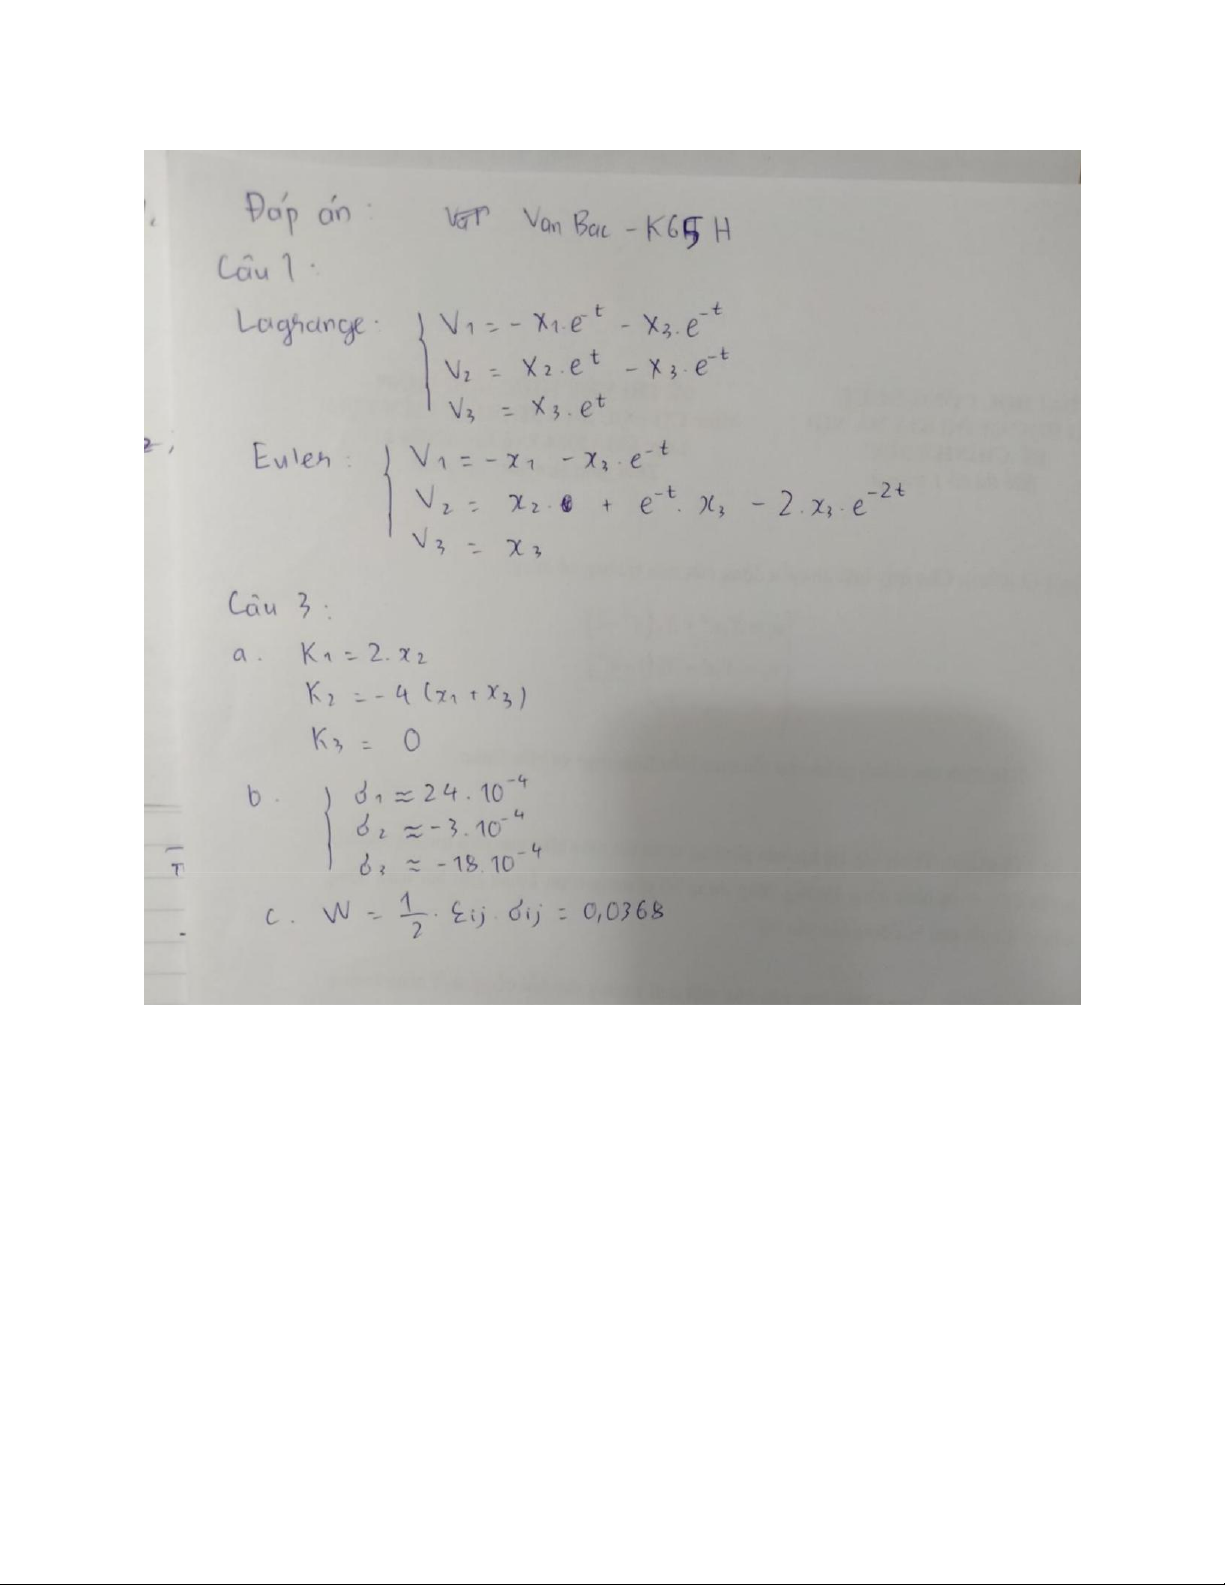 Đáp án : Van Bac - K65 H
Câu 1 :
Lagrange : { V1 = - X1.e^t - X3.e^-t
V2 = X2.e^t - X3.e^-t
V3 = X3.e^t
Euler : { V1 = - x1 - x3.e^-t
V2 = x2. + e^-t. x3 - 2.x3.e^-2t
V3 = x3
Câu 3 :
a. K1 = 2.x2
K2 = - 4 (x1 + x3)
K3 = 0
b. { σ1 ≈ 24.10^-4
σ2 ≈ -3.10^-4
σ3 ≈ -18.10^-4
c. W = 1/2 . εij. σij = 0,0368